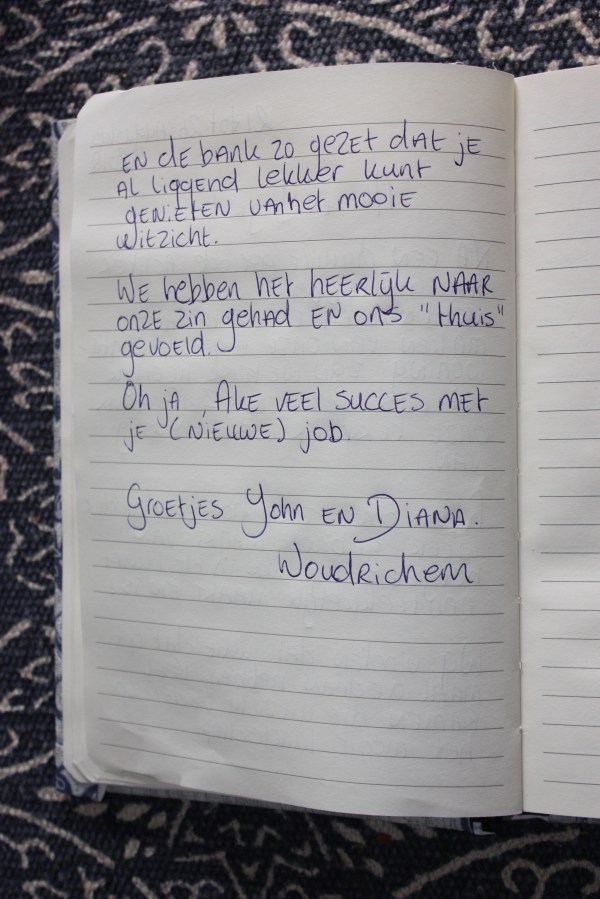 EN dE bank zo gEZET dAT jE
AL liggend lekker kunt
gENiETEN vanhet mooiE
uitzicht.
WE hebben hET hEERlijk NAAR
onzE zin gehad EN ons "thuis"
gevoeld.
Oh jA, AkE VEEl succes mET
jE (NiEUWE) job.
GroEtjes John EN DiANA.
Woudrichem